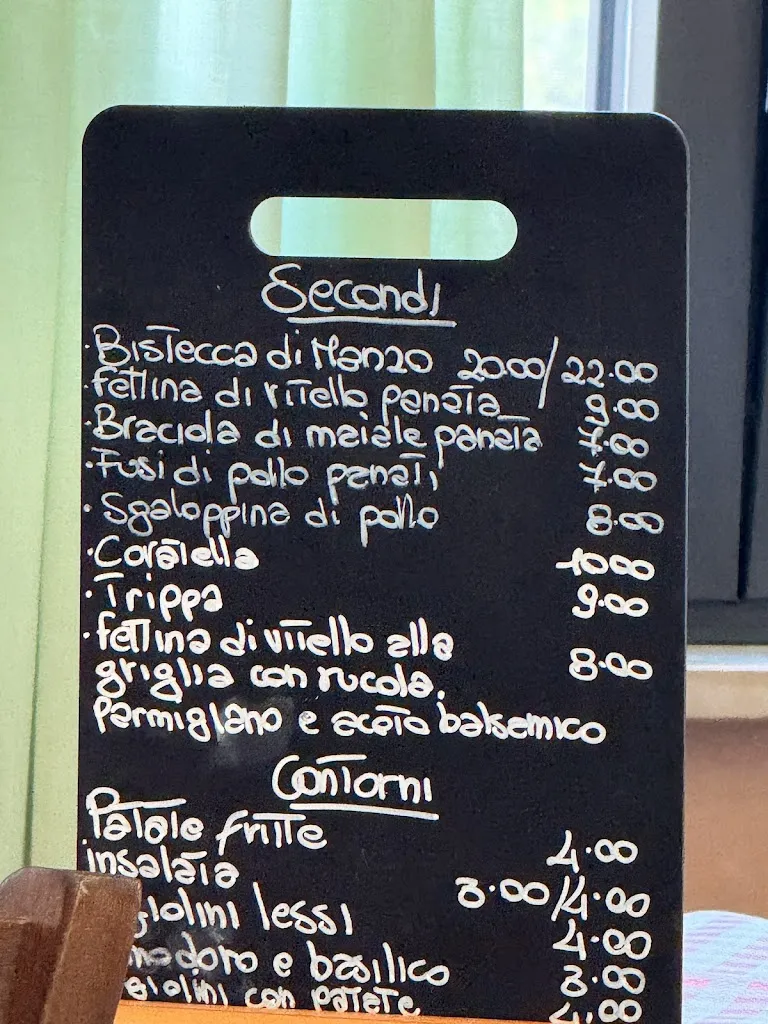 Secondi
·Bistecca di Manzo 20.00/22.00
·fettina di vitello panata 9.00
·Braciola di maiale panata 7.00
·Fusi di pollo panati 7.00
·Sgaloppina di pollo 8.00
·Coratella 10.00
·Trippa 9.00
·fettina di vitello alla
griglia con rucola. 8.00
parmigiano e aceto balsamico
Contorni
Patate fritte 4.00
insalata 3.00/4.00
giolini lessi 4.00
modoro e basilico 3.00
giolini con patate 4.00